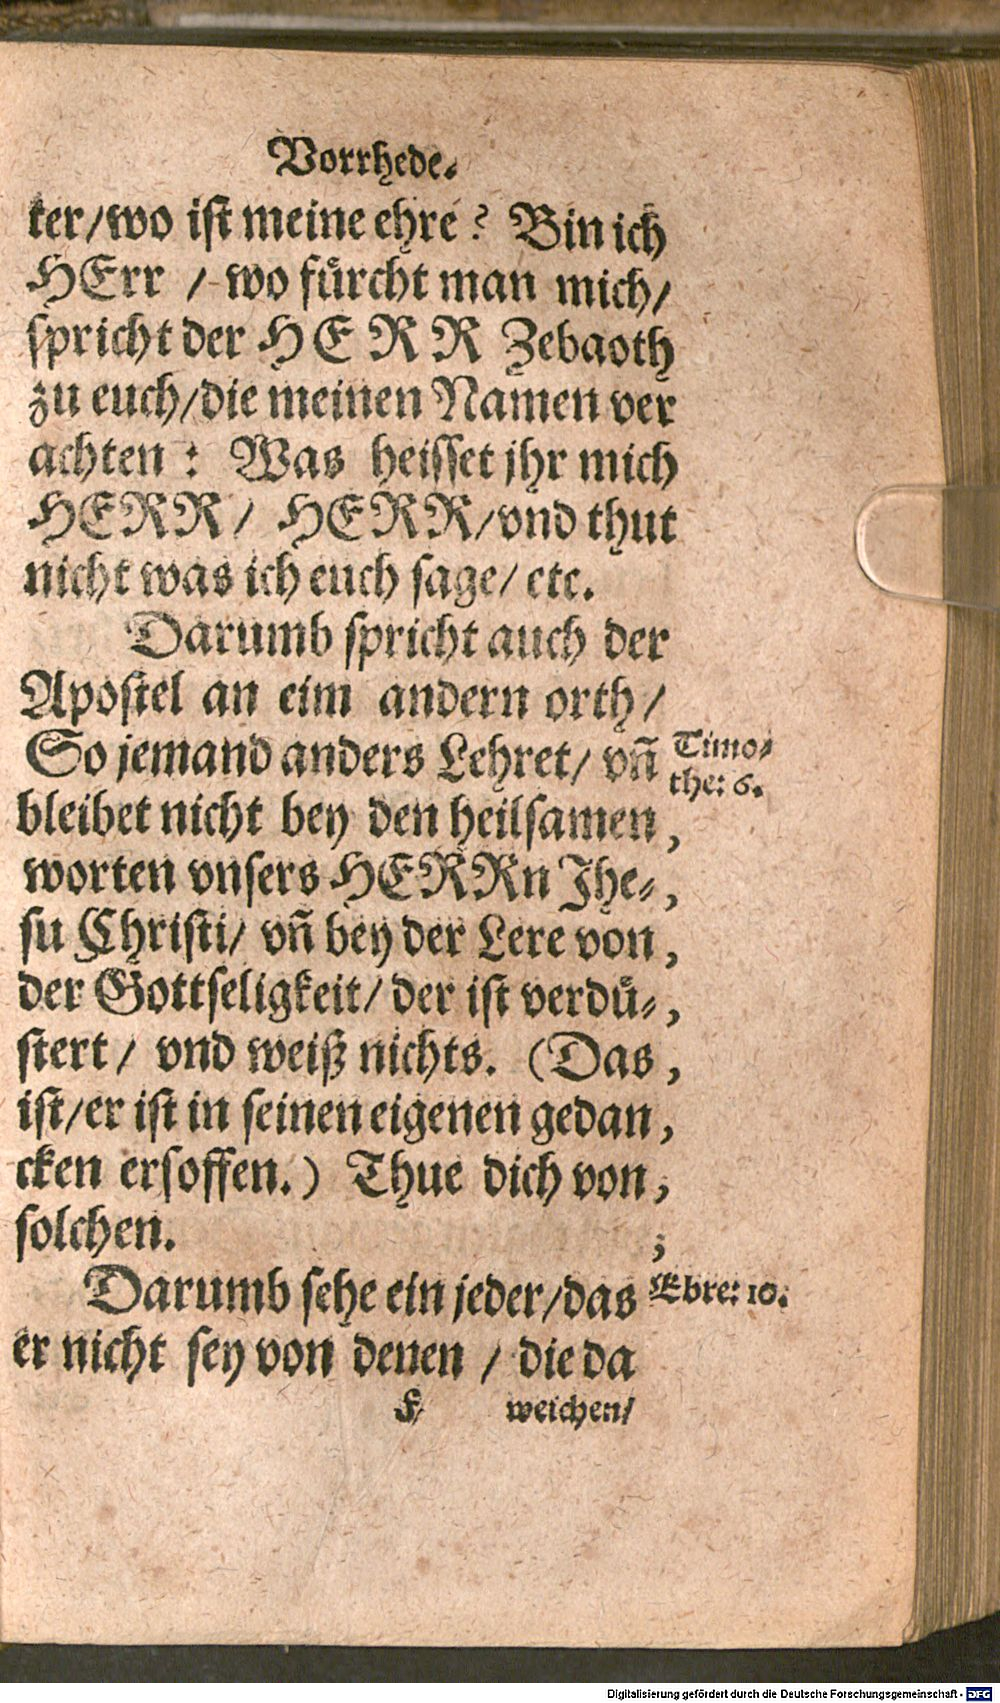 Vorrhede.
ter/wo ist meine ehre? Bin ich
HErr / wo fürcht man mich/
spricht der HERR Zebaoth
zu euch/die meinen Namen ver
achten: Was heisset jhr mich
HERR/ HERR/vnd thut
nicht was ich euch sage/ etc.
Darumb spricht auch der
Apostel an eim andern orth/
So jemand anders Lehret/ vñ
Timo⸗
the: 6.
bleibet nicht bey den heilsamen ,
worten vnsers HERRn Jhe⸗,
su Christi/ vñ bey der Lere von ,
der Gottseligkeit/ der ist verdü⸗,
stert / vnd weiß nichts. (Das ,
ist/er ist in seinen eigenen gedan ,
cken ersoffen.) Thue dich von ,
solchen. ,
Darumb sehe ein jeder/das
Ebre: 10.
er nicht sey von denen / die da
F weichen/
Digitalisierung gefördert durch die Deutsche Forschungsgemeinschaft - DFG